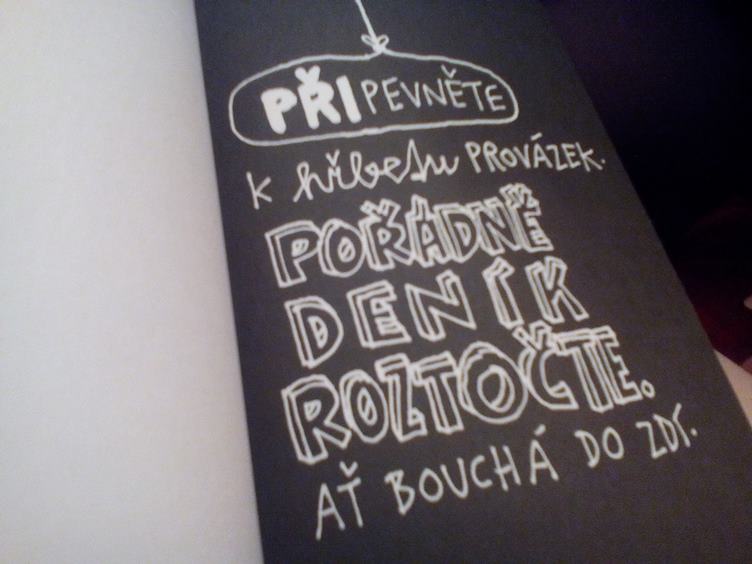 PŘIPEVNĚTE
K hřbetu PROVÁZEK.
POŘÁDNĚ
DENÍK
ROZTOČTE.
AŤ BOUCHÁ DO ZDÍ.